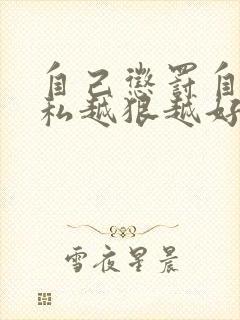 自己懲罰自
私越狠越好
雪夜星晨